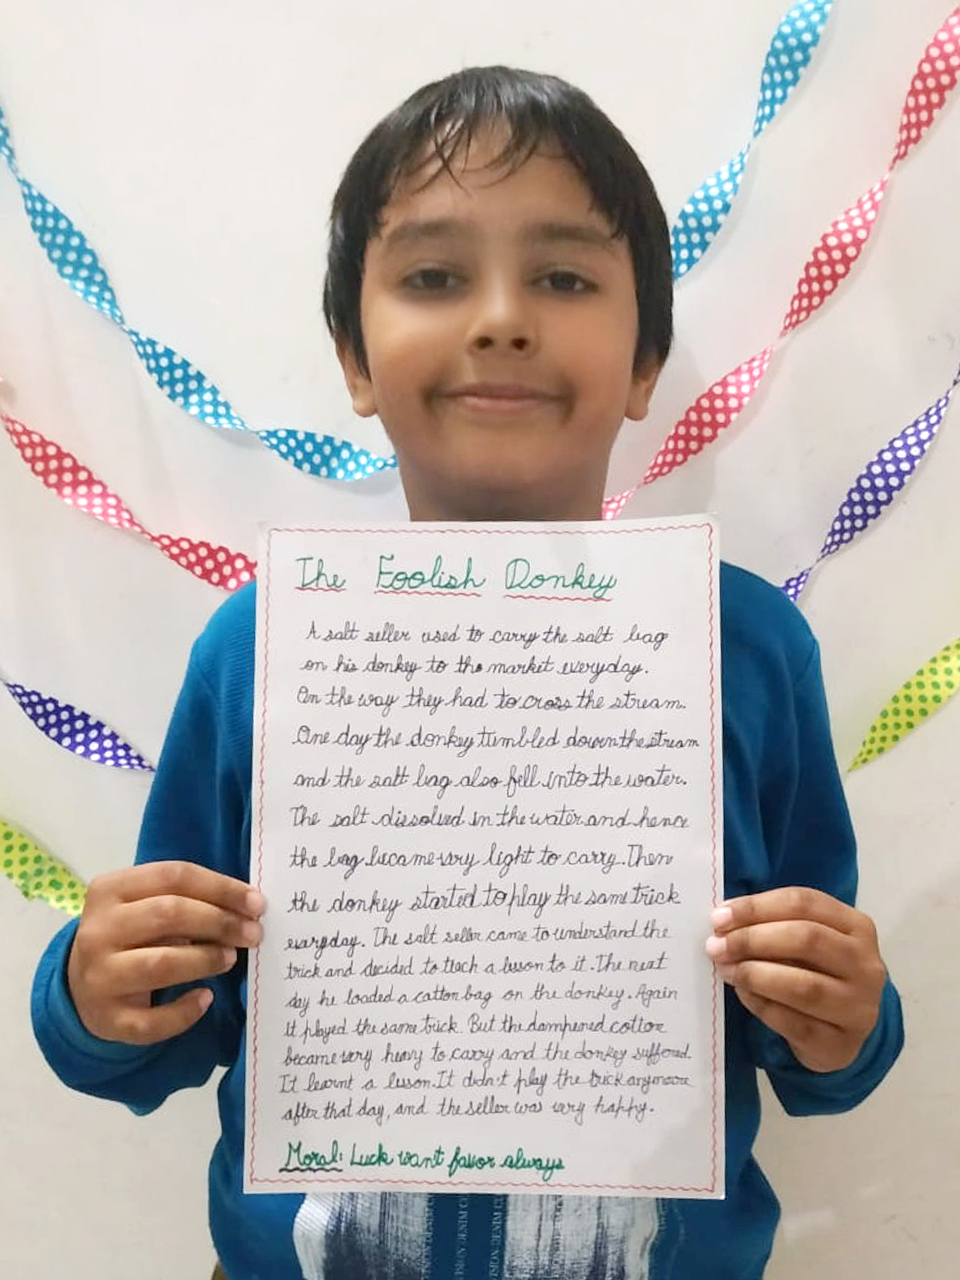 The Foolish Donkey
A salt seller used to carry the salt bag
on his donkey to the market everyday.
On the way they had to cross the stream.
One day the donkey tumbled down the stream
and the salt bag also fell into the water.
The salt dissolved in the water and hence
the bag became very light to carry. Then
the donkey started to play the same trick
everyday. The salt seller came to understand the
trick and decided to teach a lesson to it. The next
day he loaded a cotton bag on the donkey. Again
it played the same trick. But the dampened cotton
became very heavy to carry and the donkey suffered.
It learnt a lesson. It didn't play the trick anymore
after that day, and the seller was very happy.
Moral: Luck want favor always